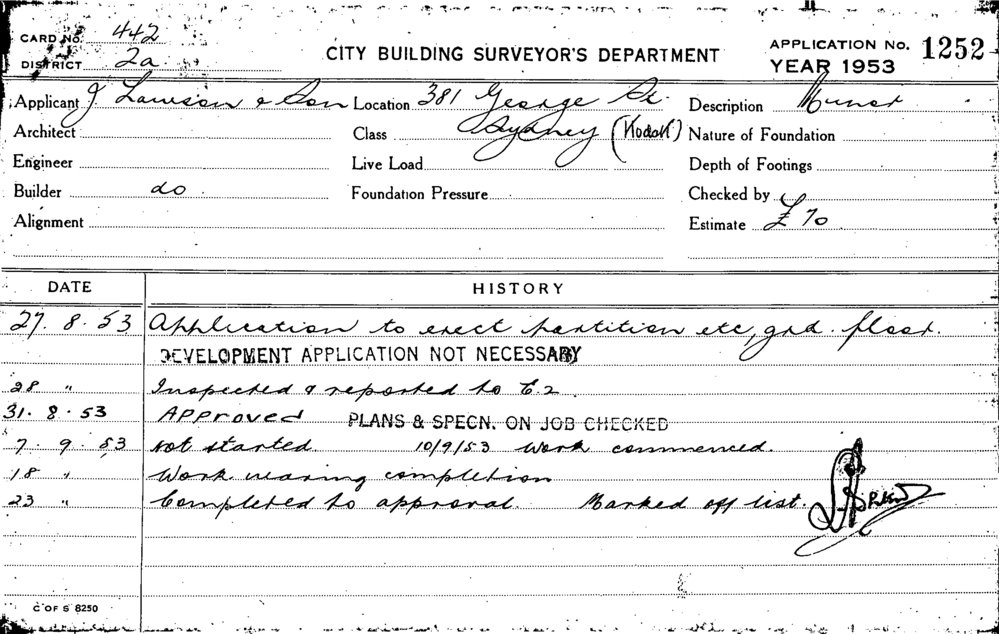 CARD No. 442
DISTRICT 2a
CITY BUILDING SURVEYOR'S DEPARTMENT
APPLICATION No. 1252
YEAR 1953
Applicant J. Lawson & Son Location 381 George St. Description Minor
Architect Class Sydney (Kodak) Nature of Foundation
Engineer Live Load Depth of Footings
Builder do Foundation Pressure Checked by
Alignment Estimate £70
DATE HISTORY
27.8.53 Application to erect partition etc, grd. floor.
DEVELOPMENT APPLICATION NOT NECESSARY
28 " Inspected & reported to C.2.
31.8.53 Approved PLANS & SPECN. ON JOB CHECKED
7.9.53 not started. 10/9/53 Work commenced.
18 " Work nearing completion
23 " Completed to approval. Marked off list.
C OF S 8250